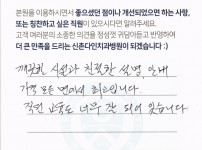 본원을 이용하시면서 좋으셨던 점이나 개선되었으면 하는 사항,
또는 칭찬하고 싶은 직원이 있으시다면 알려주세요.
고객 여러분의 소중한 의견을 정성껏 귀담아듣고 반영하여
더 큰 만족을 드리는 신촌다인치과병원이 되겠습니다 :)
깨끗한 시설과 친절한 설명, 안내
가격 모든 면에서 최고입니다
직원 교육도 너무 잘 되어 있습니다